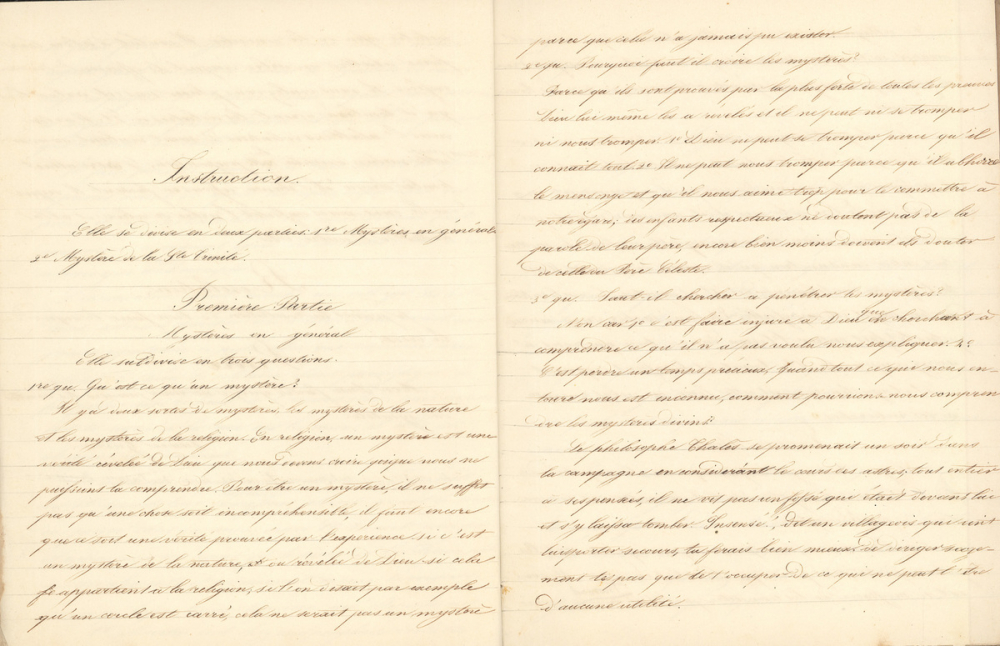 Instruction.
Elle se divise en deux parties: 1re Mystères en général
2e Mystère de la Ste Trinité.
Première Partie
Mystères en général
Elle subdivise en trois questions.
1re qu. Qu'est ce qu'un mystère?
Il y a deux sortes de mystères, les mystères de la nature
et les mystères de la religion. En religion, un mystère est une
vérité révélée de Dieu que nous devons croire quique nous ne
puissions la comprendre. Pour être un mystère, il ne suffit
pas qu'une chose soit incompréhensible, il faut encore
que ce soit une vérité prouvée par l'expérience si c'est
un mystère de la nature, et ou révélée de Dieu si cela
appartient a la religion, si l'on disait par exemple
qu'un cercle est carré, cela ne serait pas un mystère
parce que cela n'a jamais pu exister.
2e qu. Pourquoi faut il croire les mystères?
Parce qu'ils sont prouvés par la plus forte de toutes les preuves
Dieu lui même les a révélés et il ne peut ni se tromper
ni nous tromper. 1e Dieu ne peut se tromper parce qu'il
connait tout. 2e Il ne peut nous tromper parce qu'il abhorre
le mensonge et qu'il nous aime trop pour le commettre à
notre égard; des enfants respectueux ne doutent pas de la
parole de leur père, encore bien moins doivent ils douter
de celle du Père Céleste.
3e qu. Faut-il chercher a pénétrer les mystères?
Non car 1e c'est faire injure a Dieu que de cherchant à
comprendre ce qu'il n'a pas voulu nous expliquer. 2e
C'est perdre un temps précieux. Quand tout ce que nous en-
toure nous est inconnu, comment pourrions-nous compren
dre les mystères divins?
Le philosophe Thalès se promenait un soir dans
la campagne en considérant le cours des astres; tout entier
à ses pensées, il ne vit pas un fossé que était devant lui
et s'y laissa tomber. Insensé!, dit un villageois qui vint
lui porter secours, tu ferais bien mieux de diriger sage-
ment tes pas que de t'occuper de ce qui ne peut t'être
d'aucune utilité.